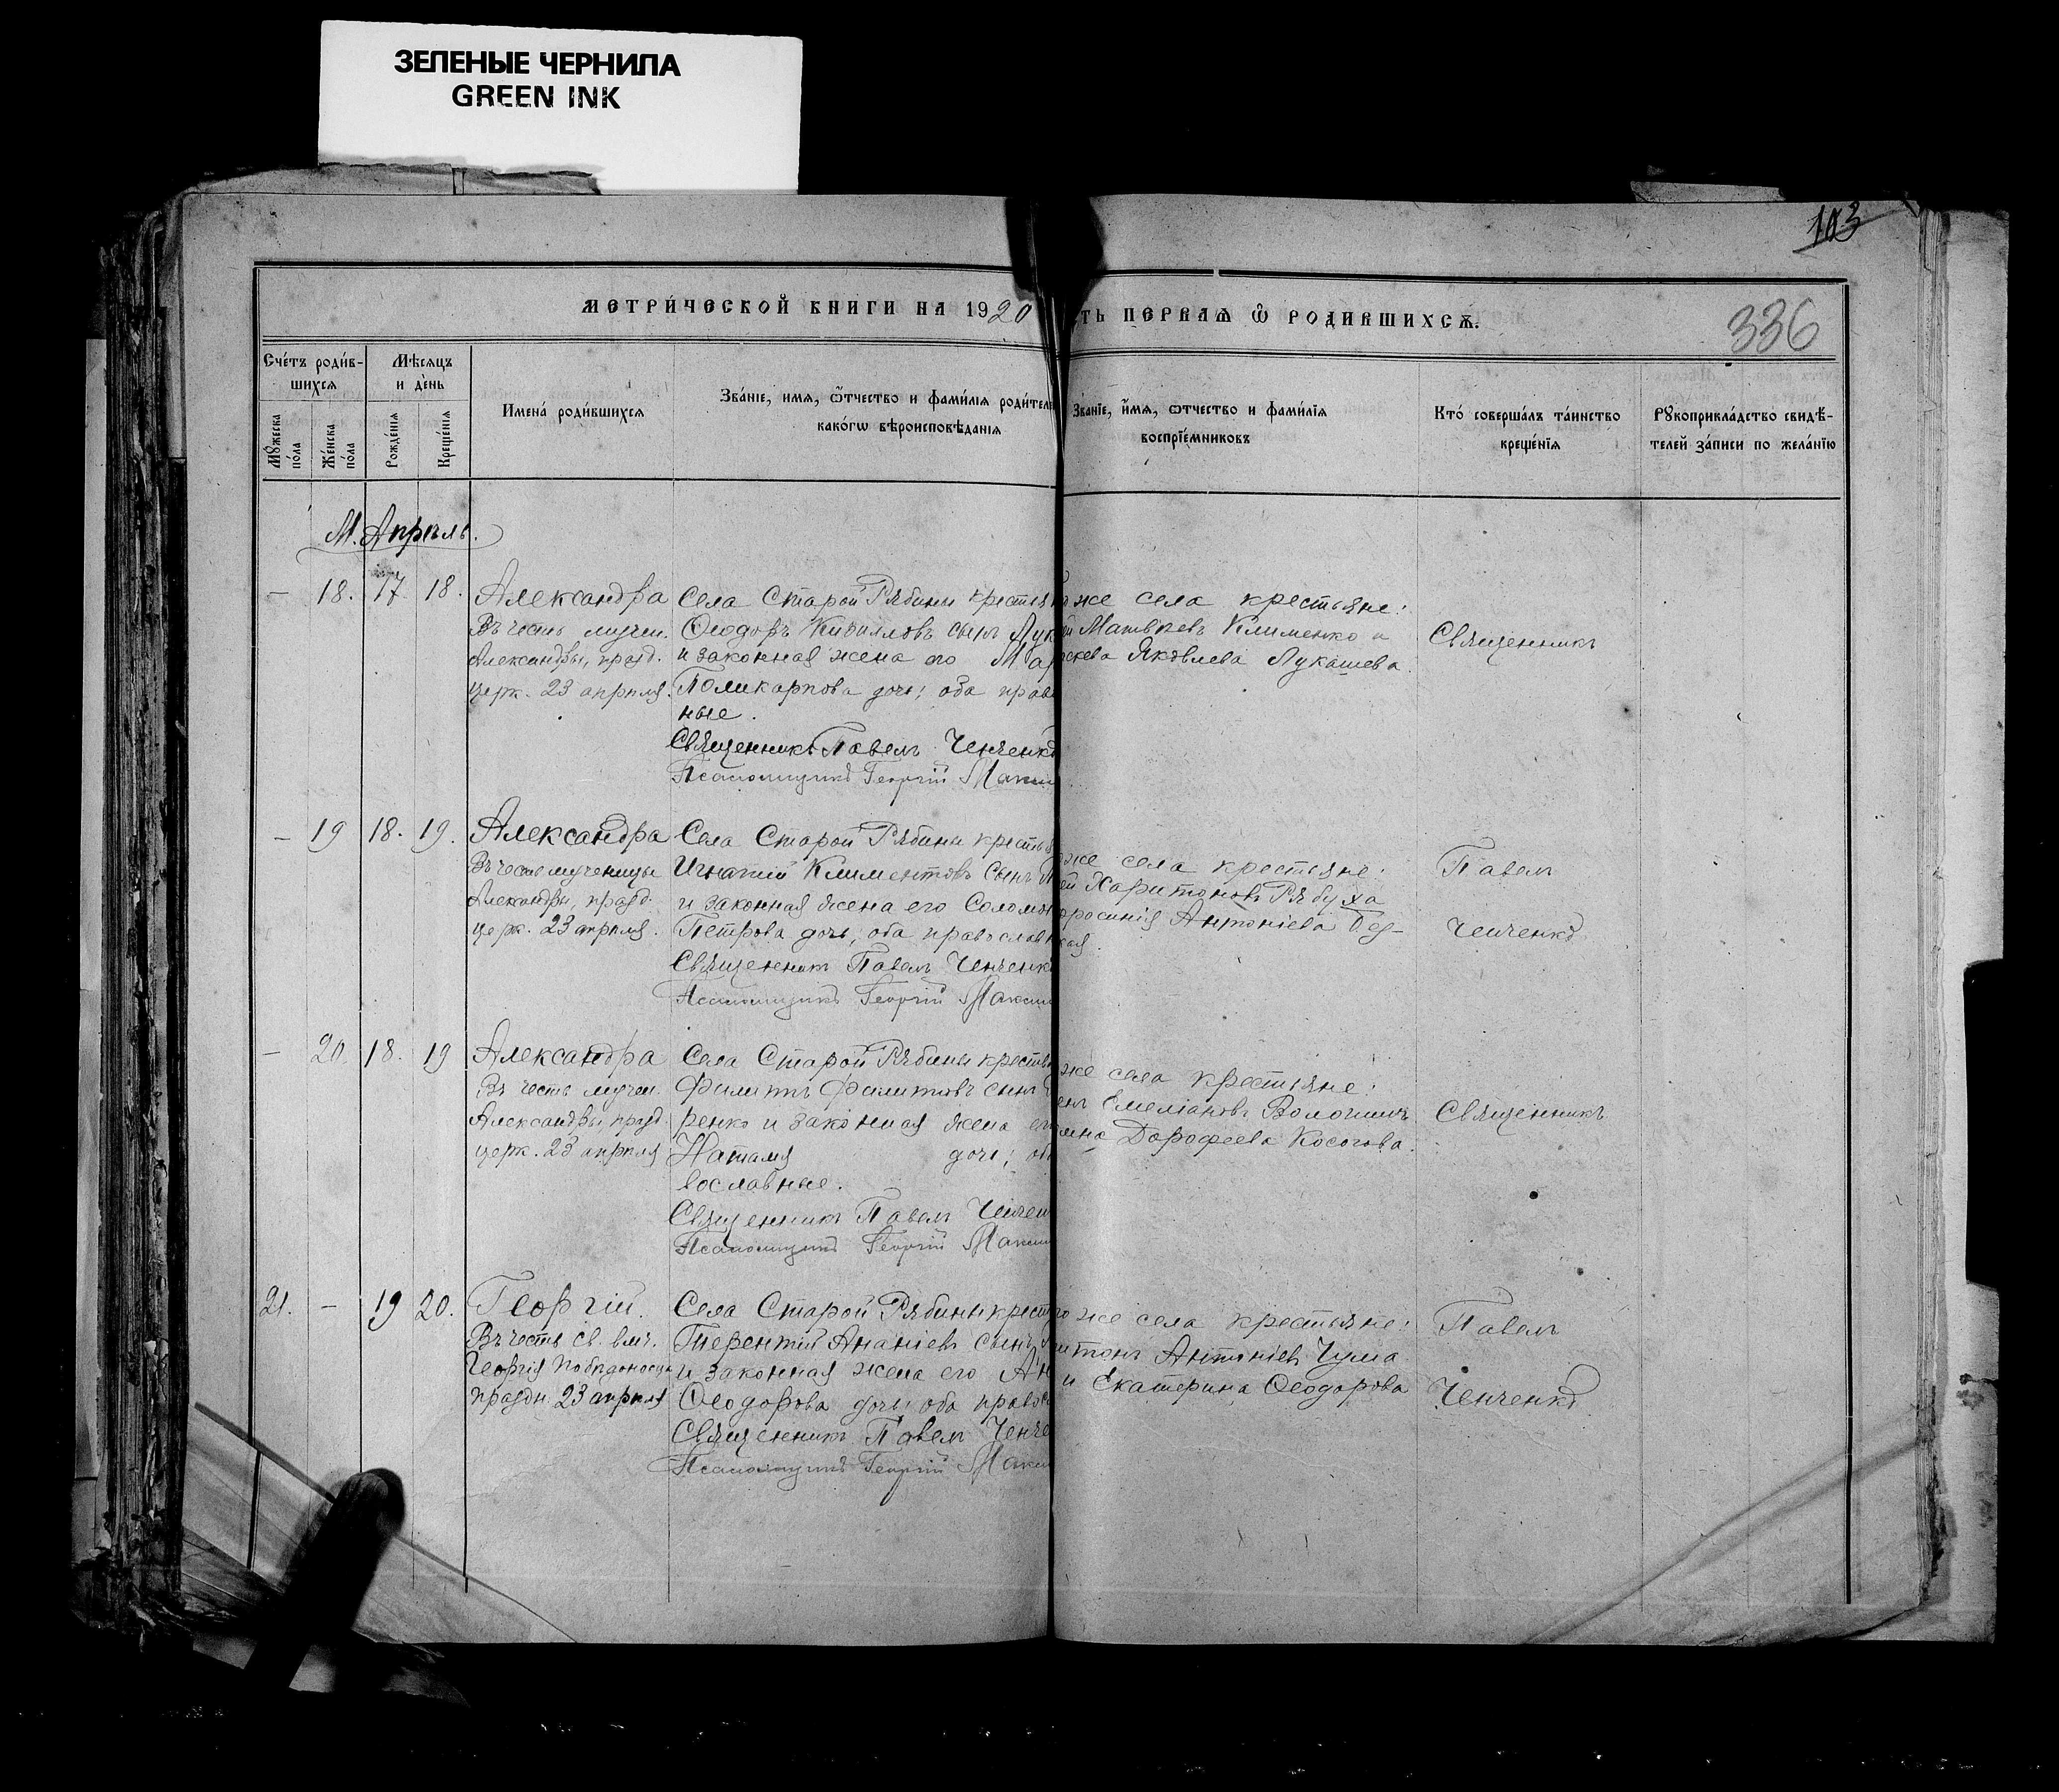 ЗЕЛЕНЫЕ ЧЕРНИЛА
GREEN INK
103
МЕТРИ́ЧЕСКОЙ КНИГИ НА 1920
ПЕРВАѦ Ѿ РОДИВШИХСѦ.
336
Сче́тъ роди́в-
шихсѧ
Мѣ́сѧцъ
и де́нь
Мꙋ́жеска
по́ла
Же́нска
по́ла
Рожде́нїѧ
Креще́нїѧ
Имена́ роди́вшихсѧ
Зва́нїе, имѧ, ѻ҆́тчество и фами́лїѧ роди́теле
како́гѡ вѣроисповѣ́данїѧ
Зва́нїе, и҆́мѧ, ѻ҆́тчество и фами́лїѧ
воспрїе́мниковъ
Кто́ соверша́лъ та́инство
креще́нїѧ
Рꙋкоприкла́дство свидѣ́-
телей за́писи по жела́нїю
М. Апрѣль.
— 18. 17 18.
Александра
Въ честь мучен.
Александры, празд.
церк. 23 апрѣля.
Села Старой Рябины крестья
Ѳеодоръ Кирилловъ сынъ Лук
и законная жена его Мар
Поликарпова дочь; оба прав
ные.
Священникъ Павелъ Ченченко
Псаломщикъ Георгій Макси
же села крестьяне:
Матвѣевъ Клименко и
Яковлева Лукашева.
Священникъ
— 19 18. 19.
Александра
Въ честь мученицы
Александры, празд.
церк. 23 апрѣля.
Села Старой Рябины крестья
Игнатій Климентовъ сынъ
и законная жена его Соломон
Петрова дочь, оба православн
Священникъ Павелъ Ченченко
Псаломщикъ Георгій Макси
же села крестьяне:
Харитоновъ Рябуха
Антоніева
Павелъ
Ченченко
— 20. 18. 19
Александра
Въ честь мучен.
Александры, празд.
церк. 23 апрѣля
Села Старой Рябины крестья
Филиппъ Филипповъ сынъ
ренко и законная жена ег
Наталія дочь; об
вославные.
Священникъ Павелъ Ченчен
Псаломщикъ Георгій Макси
же села крестьяне:
Емеліановъ Волошинъ
Дорофеева Косогова.
Священникъ
21. — 19 20.
Георгій.
Въ честь св. влмч.
Георгія Побѣдоносца
праздн. 23 апрѣля
Села Старой Рябины крест
Терентій Ананіевъ сынъ
и законная жена его Ан
Ѳеодорова дочь оба правос
Священникъ Павелъ Ченче
Псаломщикъ Георгій Макси
же села крестьяне:
Антоніевъ Чума
и Екатерина Ѳеодорова
Павелъ
Ченченко